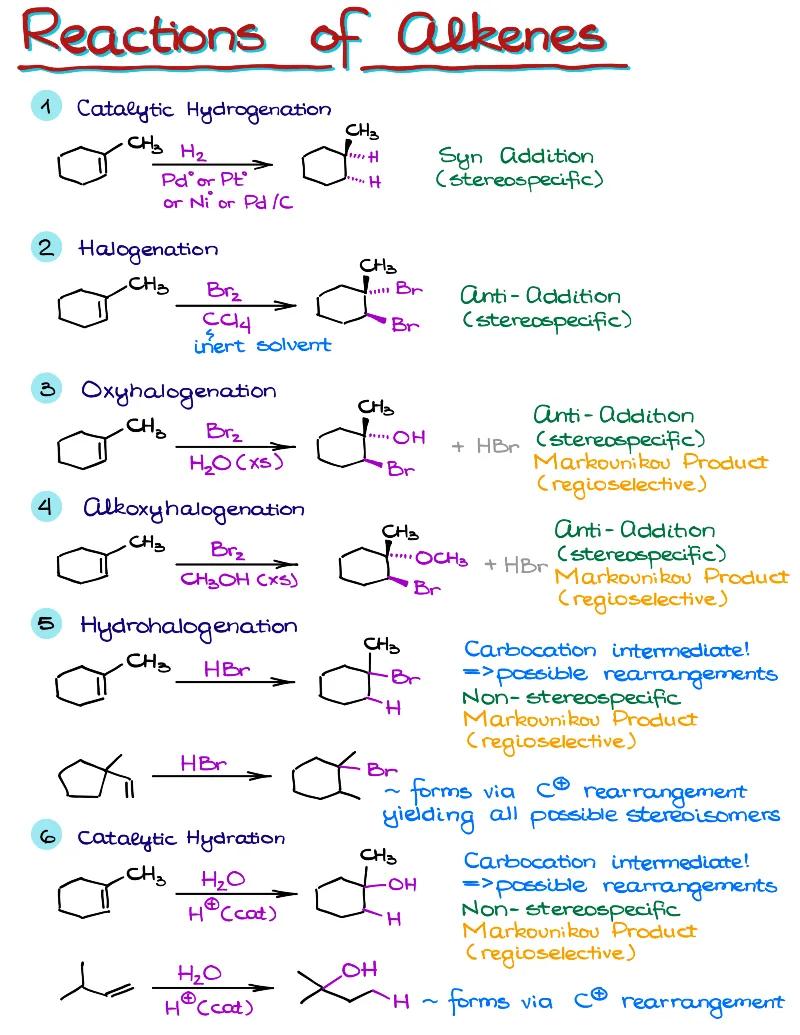 Reactions of Alkenes
1 Catalytic Hydrogenation
CH₃ H₂ CH₃
H
H
Pd° or Pt°
or Ni° or Pd/C
Syn Addition
(stereospecific)
2 Halogenation
CH₃ Br₂ CH₃
Br
Br
CCl₄
inert solvent
Anti-Addition
(stereospecific)
3 Oxyhalogenation
CH₃ Br₂ CH₃
OH
Br
H₂O (xs)
+ HBr
Anti-Addition
(stereospecific)
Markovnikov Product
(regioselective)
4 Alkoxyhalogenation
CH₃ Br₂ CH₃
OCH₃
Br
CH₃OH (xs)
+ HBr
Anti-Addition
(stereospecific)
Markovnikov Product
(regioselective)
5 Hydrohalogenation
CH₃ HBr CH₃
Br
H
Carbocation intermediate!
=> possible rearrangements
Non-stereospecific
Markovnikov Product
(regioselective)
HBr Br
~ forms via C⊕ rearrangement
yielding all possible stereoisomers
6 Catalytic Hydration
CH₃ H₂O CH₃
OH
H
H⊕ (cat)
Carbocation intermediate!
=> possible rearrangements
Non-stereospecific
Markovnikov Product
(regioselective)
H₂O OH
H⊕ (cat) H
~ forms via C⊕ rearrangement